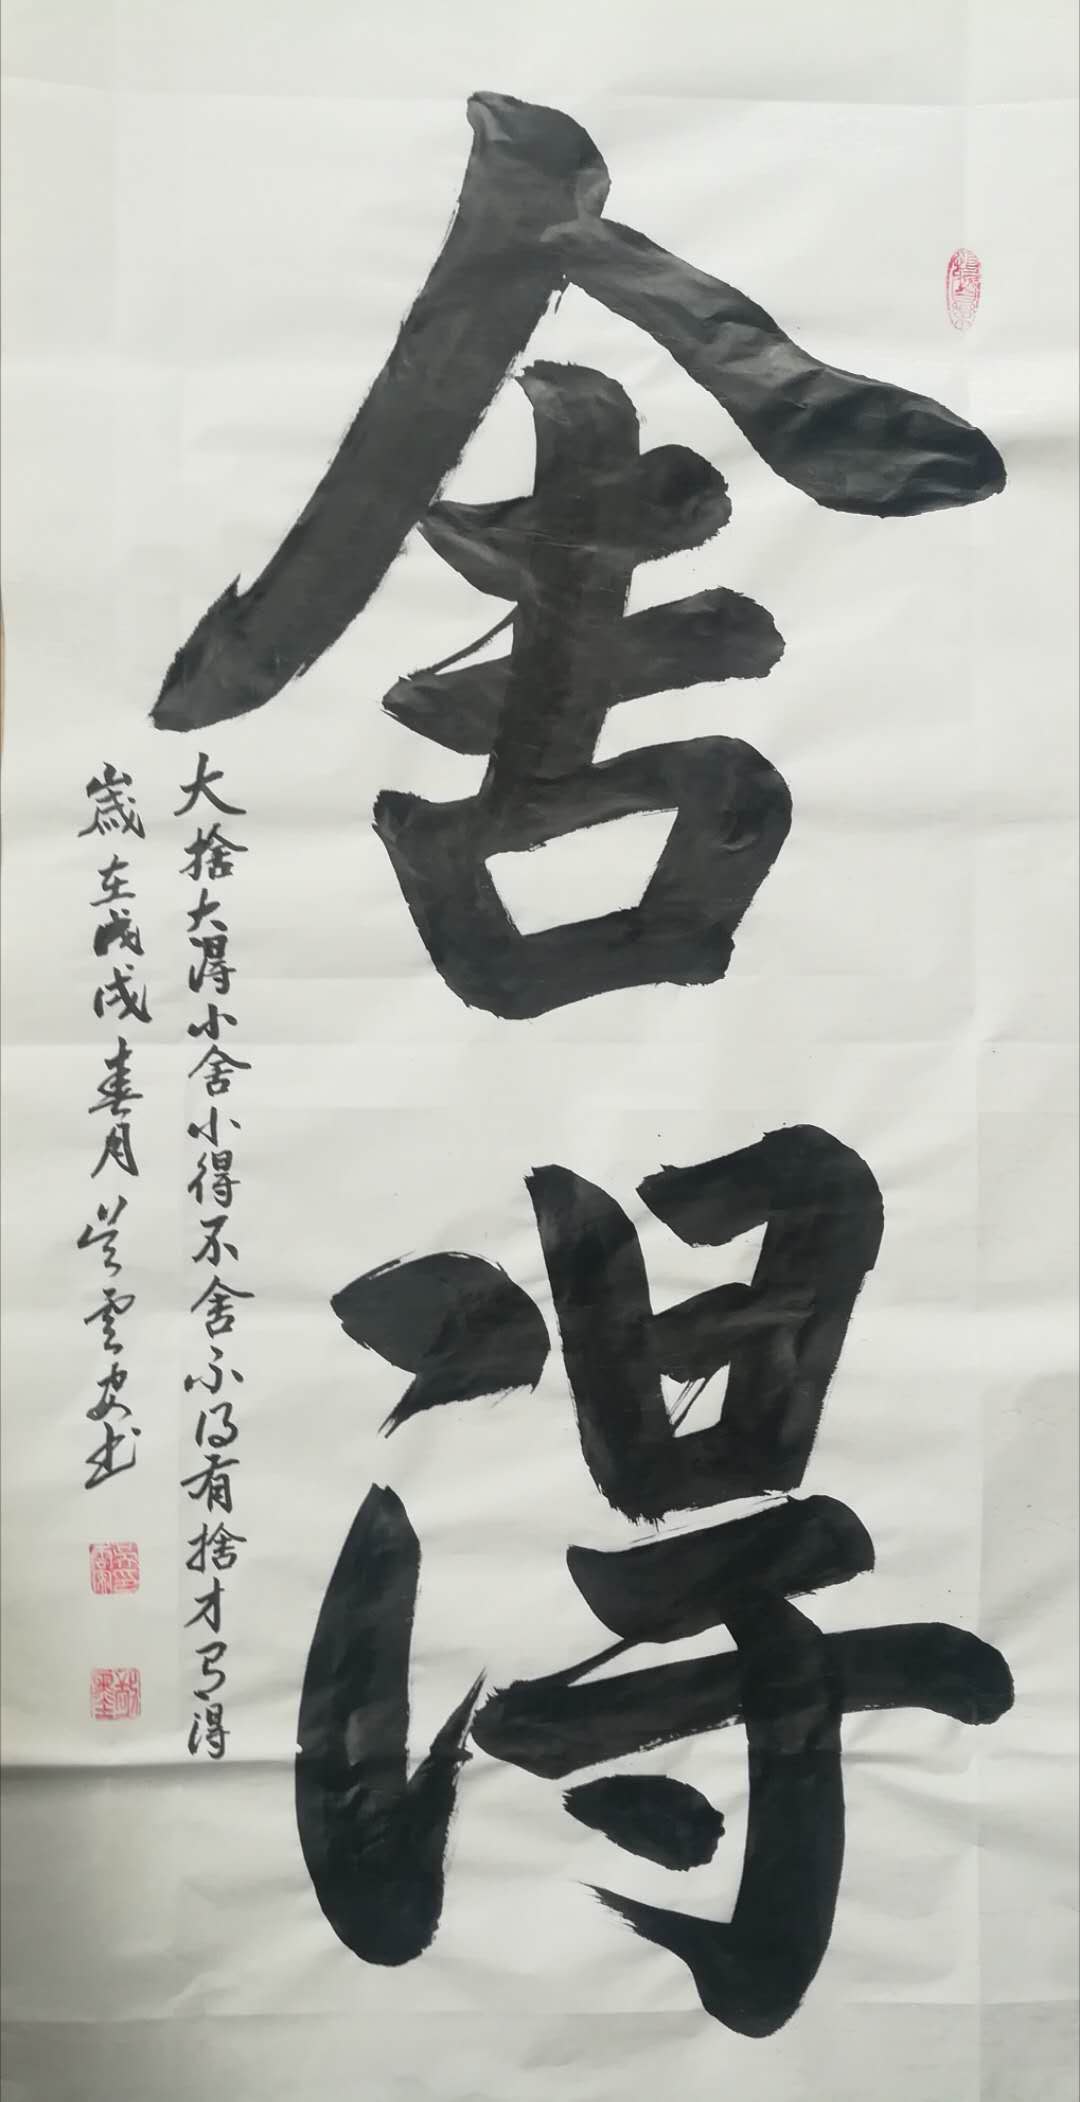 舍得
大捨大得小舍小得不舍不得有捨才有得
歲在戊戌春月吴雲安书